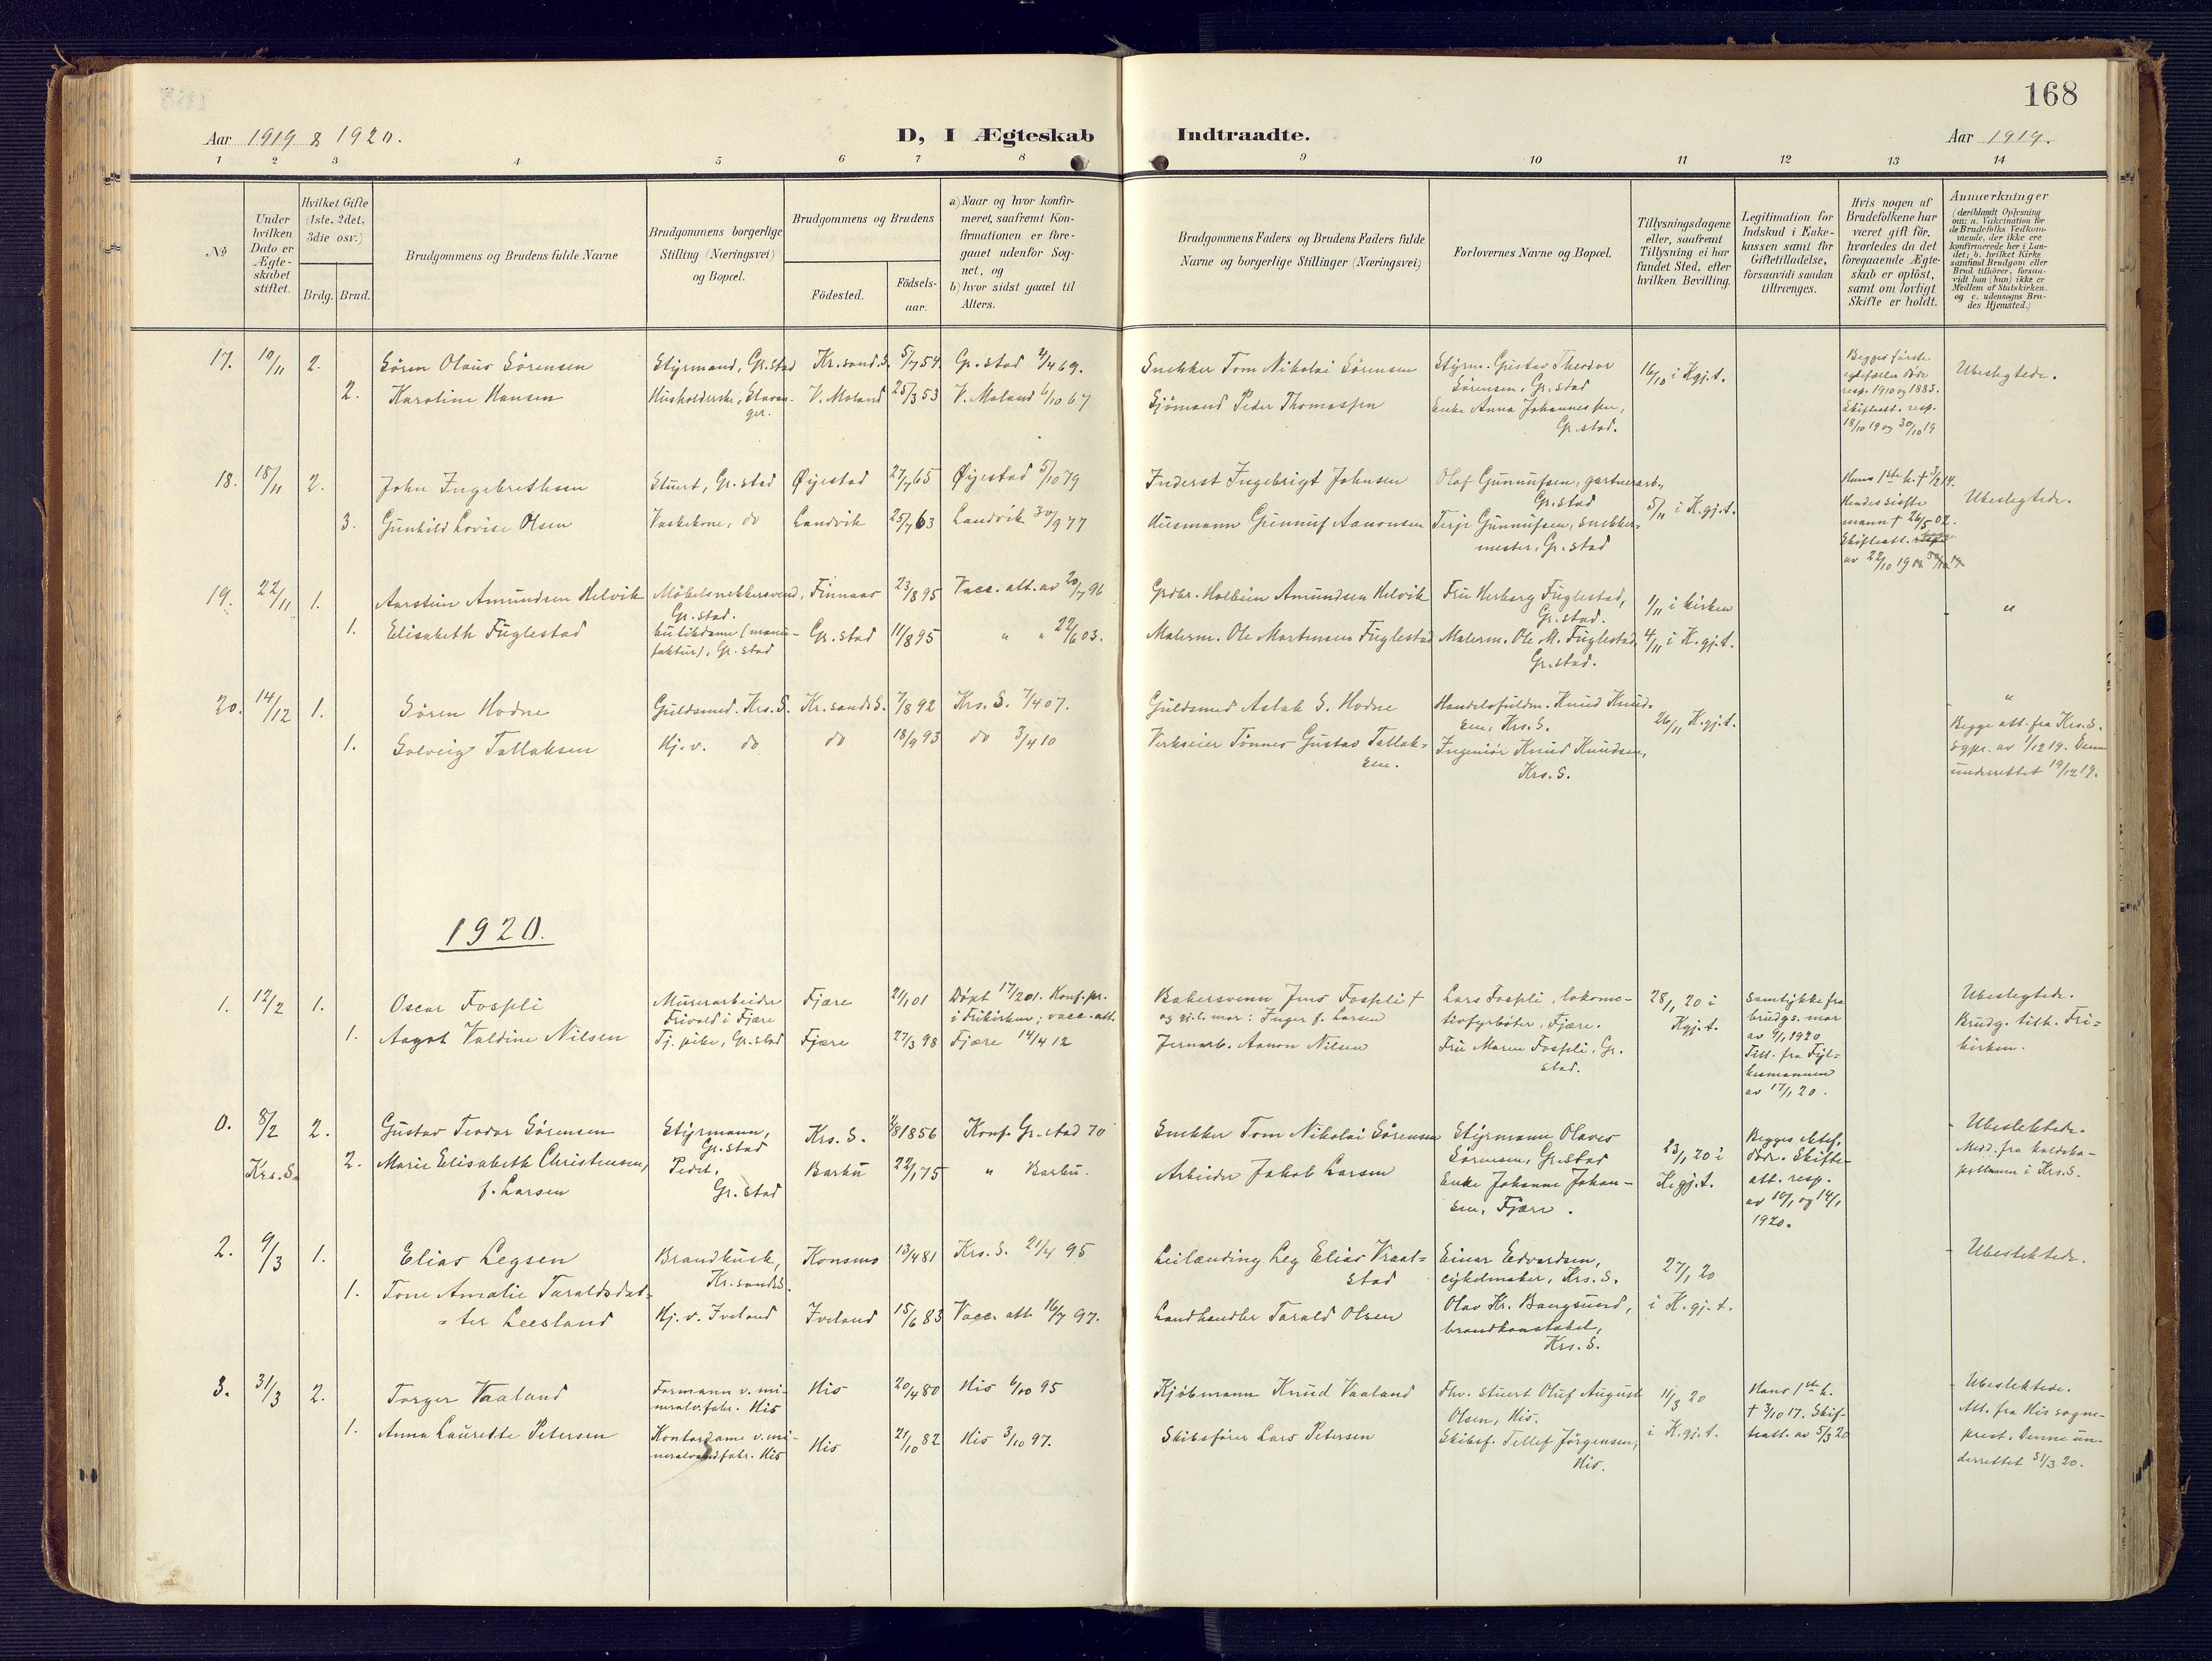 168
Aar 1919 & 1920.
D, I Ægteskab
Indtraadte.
Aar 1919.
1 2 3 4 5 6 7 8 9 10 11 12 13 14
No
Under hvilken Dato er Ægteskabet stiftet.
Hvilket Gifte (1ste, 2det, 3die osv.)
Brdg. Brud.
Brudgommens og Brudens fulde Navne
Brudgommens borgerlige Stilling (Næringsvei) og Bopæl.
Brudgommens og Brudens
Födested.
Födsels-aar.
a) Naar og hvor konfirmeret, saafremt Konfirmationen er foregaaet udenfor Sognet, og
b) hvor sidst gaaet til Alters.
Brudgommens Faders og Brudens Faders fulde Navne og borgerlige Stillinger (Næringsvei)
Forlovernes Navne og Bopæl.
Tillysningsdagene eller, saafremt Tillysning ei har fundet Sted, efter hvilken Bevilling.
Legitimation for Indskud i Enkekassen samt for Giftetilladelse, forsaavidt saadan tiltrænges.
Hvis nogen af Brudefolkene har været gift för, hvorledes da det foregaaende Ægteskab er oplöst, samt om lovligt Skifte er holdt.
Anmærkninger
(deriblandt Oplysning om: a. Vakcination for de Brudefolks Vedkommende, der ikke ere konfirmerede her i Landet; b. hvilket Kirkesamfund Brudgom eller Brud tilhörer, forsaavidt han (hun) ikke er Medlem af Statskirken. og c. udensogns Brudes Hjemsted.)
17. 10/11 2. Sören Olaus Sörensen Styrmand, Gr.stad Kr.sand.S. 5/7 54 Gr.stad 4/4 69. Snekker Tom Nikolai Sörensen Styrm. Gustav Theodor Sörensen, Gr.stad 16/10 i K.gj.t. Begges förste egtefæller döde resp. 1910 og 1883. Skifteatt. resp. 18/10 19 og 30/10 19 Ubeslegtede.
2. Karoline Hansen Husholderske, Stavanger. V. Moland 25/3 53 V. Moland 6/10 67 Sjömand Peder Thomassen Enke Anna Johannessen, Gr.stad.
18. 18/11 2. John Ingebrethsen Stuert, Gr.stad Øyestad 27/7 65 Øyestad 5/10 79 Inderst Ingebrigt Johnsen Olaf Gunnufsen, gartnerarb., Gr.stad 5/11 i K.gj.t. Hans 1ste h. † 3/2 14. Hendes sidste mann † 26/5 02. Skifteatt. av 22/10 19 Ubeslegtede.
3. Gunhild Lovise Olsen Vaskekone, do Landvik 25/7 63 Landvik 30/9 77 Husmann Gunnuf Aanonsen Terje Gunnufsen, snekkermester, Gr.stad
19. 22/11 1. Aarstein Amundsen Helvik Möbelsnekkersvend, Gr.stad. Finnaas 23/8 95 Vacc. att. av 20/7 96 Grdbr. Halbein Amundsen Helvik Fru Herborg Fuglestad, Gr.stad. 1/11 i kirken "
1. Elisabeth Fuglestad butikdame (manufaktur), Gr.stad Gr.stad 11/8 95 " " 22/6 03. Malerm. Ole Mortensen Fuglestad Malerm. Ole M. Fuglestad, Gr.stad. 4/11 i K.gj.t.
20. 14/12 1. Sören Hodne Guldsmed. Krs.S. Kr.sandsS. 7/8 92 Krs. S. 7/4 07. Guldsmed Aslak S. Hodne Handelsfuldm. Knud Knudsen, Krs.S. 26/11 K.gj.t. " Begge att. fra Krs.S. Sgpr. av 1/12 19. Denne underrettet 19/12 19.
1. Solveig Tallaksen Hj.v. do do 18/9 93 do 3/4 10 Verkseier Tönnes Gustav Tallaksen. Ingeniör Knud Knudsen, Krs.S.
1920.
1. 12/2 1. Oscar Fospli Murerarbeider Frivold i Fjære Fjære 21/1 01 Döpt 17/2 01. Konf. pr. i Frikirken; vacc. att. Bakersvenn Jens Fospli † og g.l. mor: Inger f. Larsen Lars Fospli, lokomotivfyrböter, Fjære. 28/1 20 i K.gj.t. Samtykke fra brudgs. mor av 9/1 1920 Till. fra Fylkesmannen av 17/1 20. Ubeslegtede. Brudg. tilh. Frikirken.
1. Aagot Valdine Nilsen Tj.pike, Gr.stad Fjære 27/3 98 Fjære 14/4 12 Jernarb. Aanon Nilsen Fru Maren Fospli, Gr.stad.
0. 8/2 Krs.S. 2. Gustav Teodor Sörensen Styrmann, Gr.stad Krs. S. 1856 Konf. Gr.stad 70 Snekker Tom Nikolai Sörensen Styrmann Olaves Sörensen, Gr.stad 23/1 20 i K.gj.t. Begges ektef. döde. Skifteatt. resp. av 10/1 og 14/1 1920. Ubeslektede. Medd. fra kaldskapellanen i Krs.S.
2. Marie Elisabeth Christensen, f. Larsen Gr.stad Barbu 22/1 75 " Barbu. Arbeider Jakob Larsen Enke Johanne Johansen, Fjære.
2. 9/3 1. Elias Legsen Brandkusk, Kr.sandS. Konsmo 13/4 81 Krs. S. 21/4 95 Leilænding Leg Elias Vraalstad Einar Edvardsen, cykelmaker, Krs. S. 27/1 20 i K.gj.t. Ubeslektede.
1. Tone Amalie Taraldsdatter Leesland Hj. v. Iveland Iveland 15/6 83 Vacc. att. 16/7 97. Landhandler Tarald Olsen Olav Kr. Bangsund, brandkonstabel, Krs. S.
3. 31/3 2. Torger Vaaland Formann v. mineralv.fabr. His His 20/4 80 His 6/10 95 Kjöbmann Knud Vaaland Fhv. stuert Oluf August Olsen, His. 11/3 20 i K.gj.t. Hans 1ste h. † 3/10 17. Skifteatt. av 5/3 20 Ubeslektede. Att. fra His sogneprest. Denne underrettet 31/3 20.
1. Anna Lauredte Petersen Kontordame v. mineralvandfabr. His His 21/10 82 His 3/10 97. Skibsförer Lars Petersen Skibsf. Tellef Jörgensen, His.